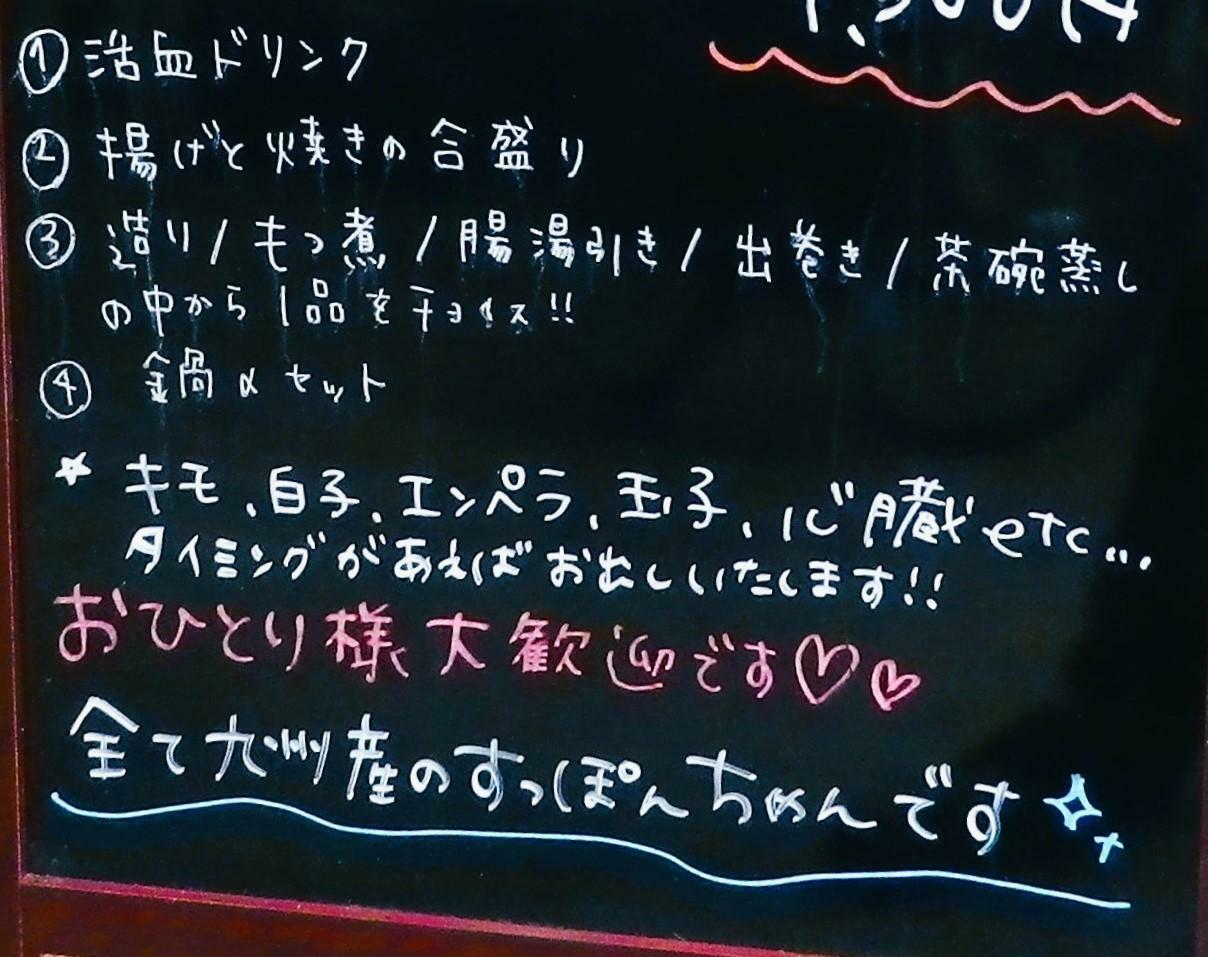 ①活血ドリンク
②揚げと焼きの合盛り
③造り/もつ煮/腸湯引き/出巻き/茶碗蒸し
の中から1品をチョイス!!
④鍋αセット
☆キモ、白子、エンペラ、玉子、心臓etc...
タイミングがあえばお出しいたします!!
おひとり様大歓迎です♡♡
全て九州産のすっぽんちゃんです